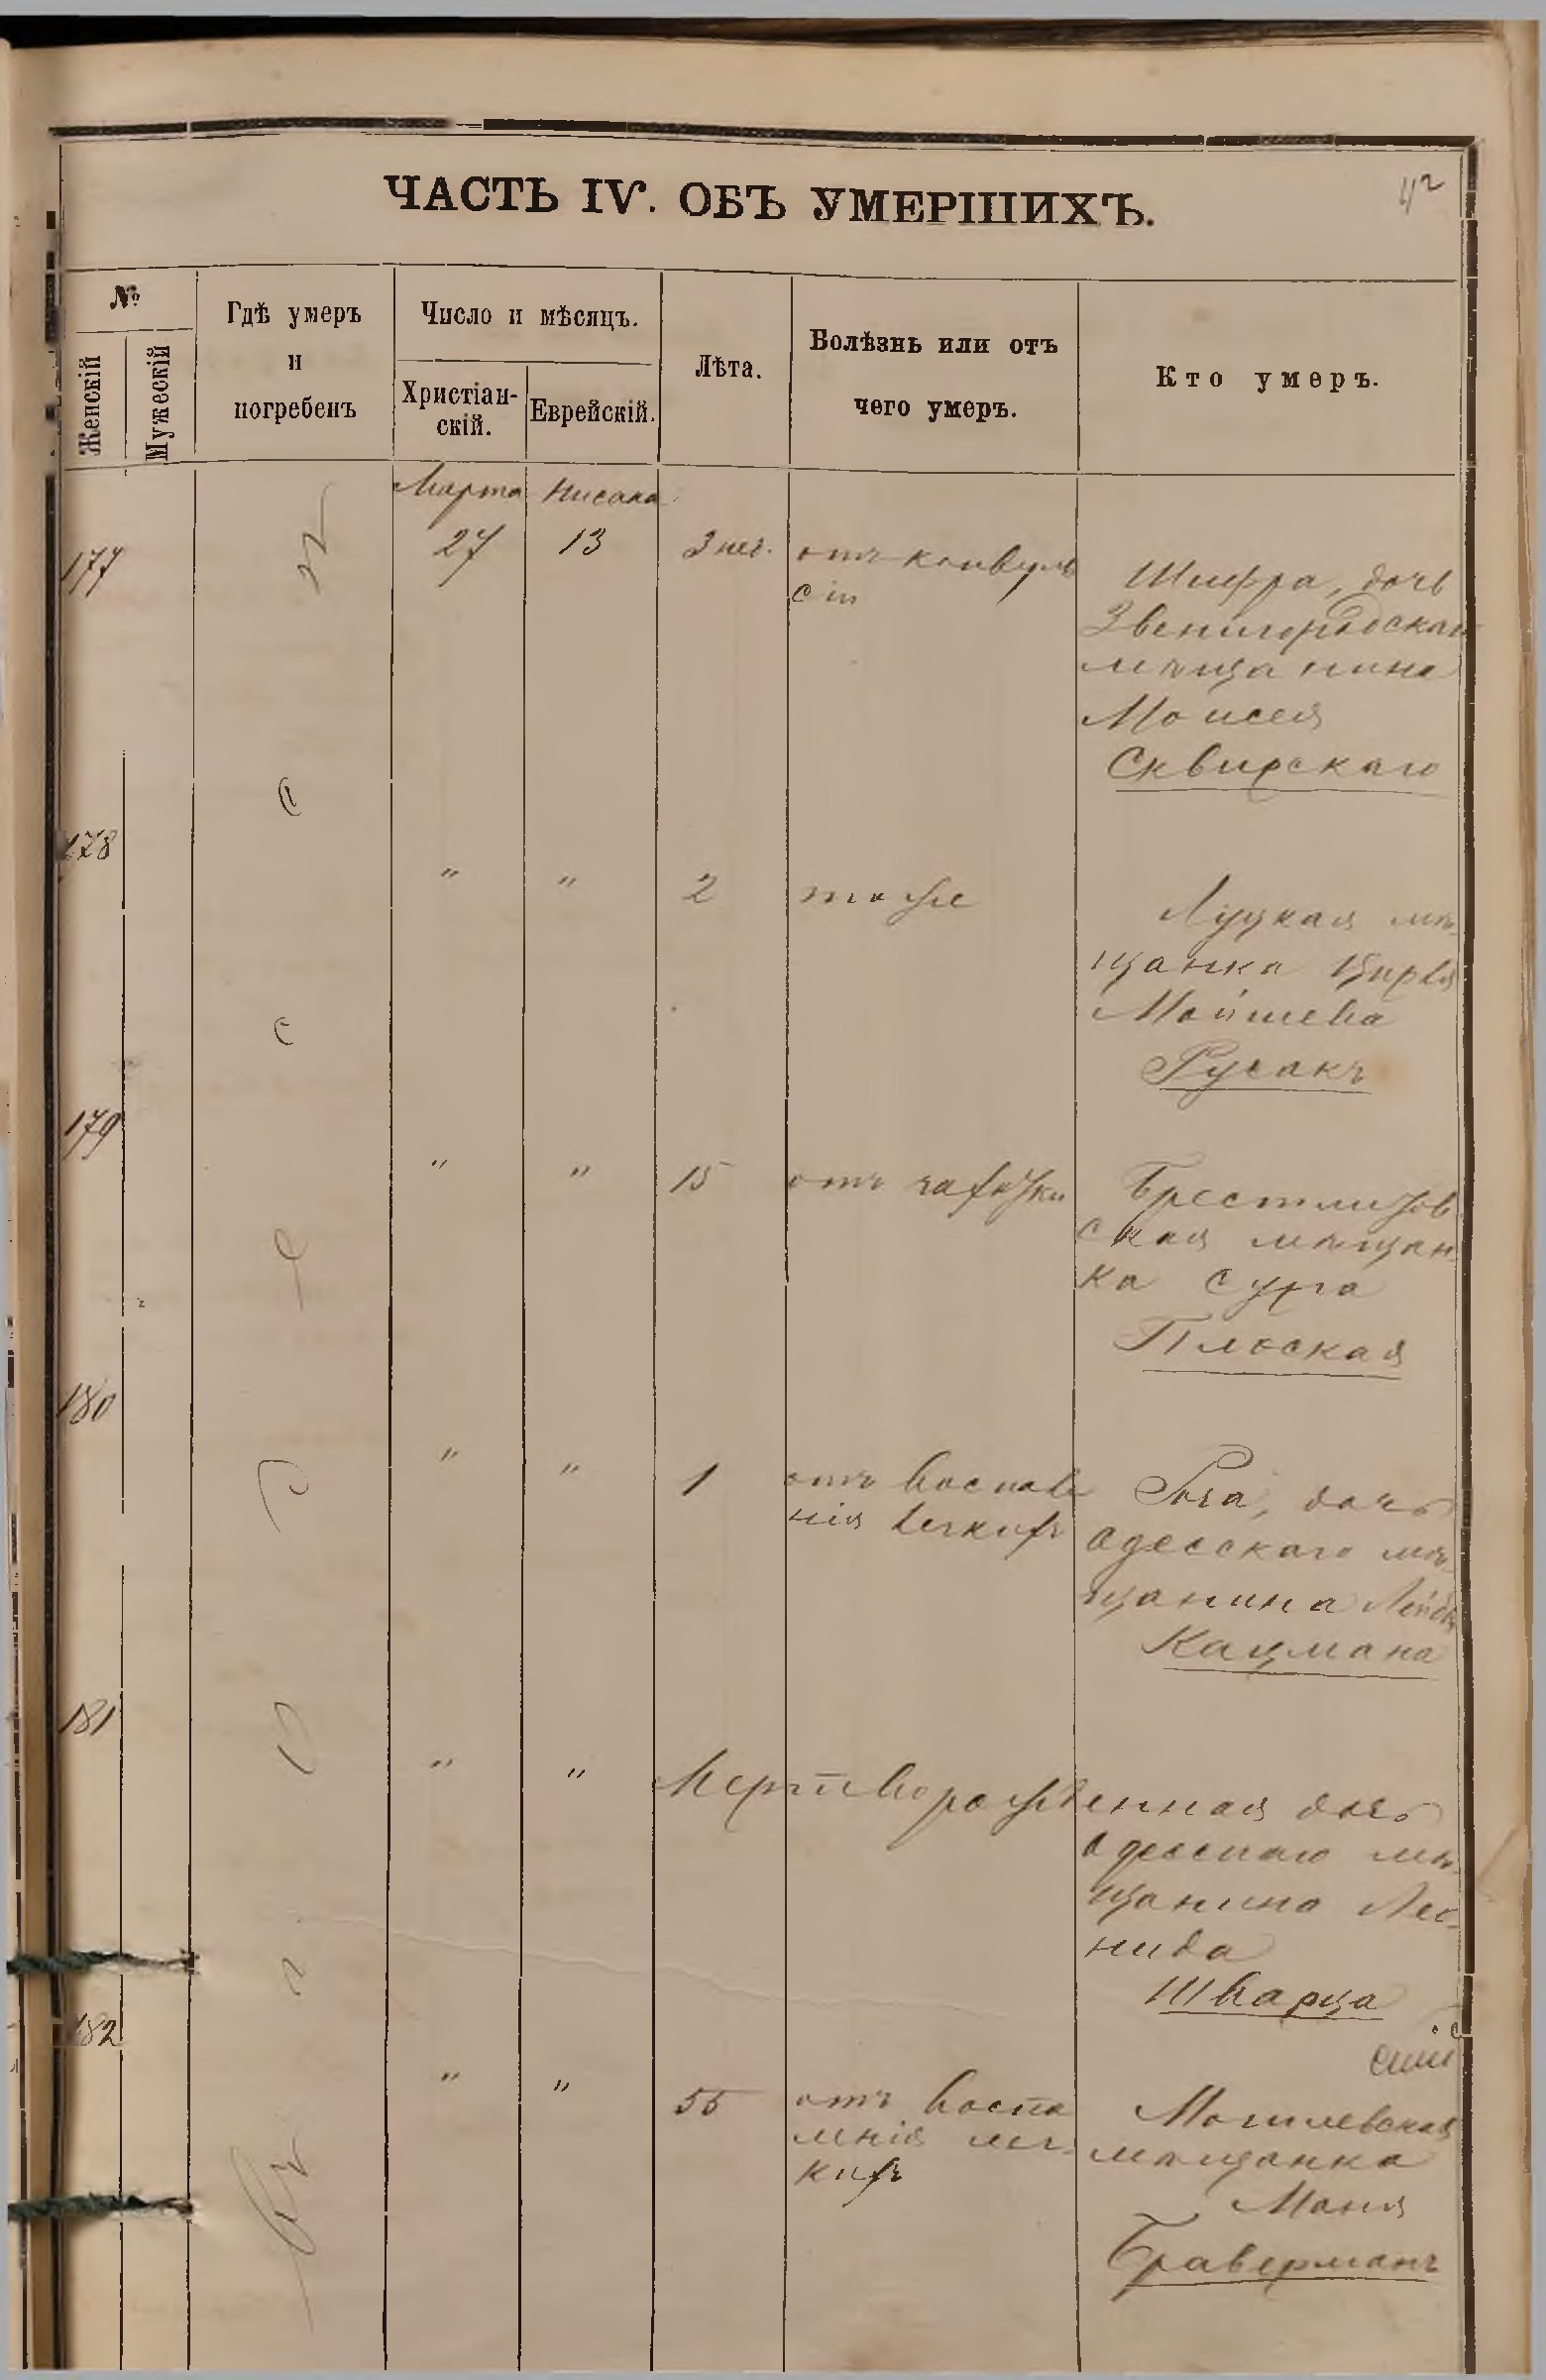 ЧАСТЬ IV. ОБЪ УМЕРШИХЪ.
42
№
Женскій
Мужескій
Гдѣ умеръ
и
погребенъ
Число и мѣсяцъ.
Христіан-
скій.
Еврейскій.
Лѣта.
Болѣзнь или отъ
чего умеръ.
Кто умеръ.
Марта Нисана
177 27 13 3 нед. отъ конвуль
сіи
Шифра, дочь
Звенигородскаго
мѣщанина
Моисея
Сквирскаго
178 " " 2 тоже
Луцкая мѣ-
щанка Цирля
Мойшева
Русакъ
179 " " 15 отъ чахотки
Брестлитов-
ская мѣщан-
ка Сура
Плоская
180 " " 1 отъ воспале
нія легкихъ
Роза, дочь
Одесскаго мѣ-
щанина Лейбы
Кацмана
181 " " Мертворожденная дочь
Одесскаго мѣ-
щанина Лео-
нида
Шварца
182 " " 55 отъ воспа
ленія лег-
кихъ
Могилевская
мѣщанка
Маня
Браверманъ